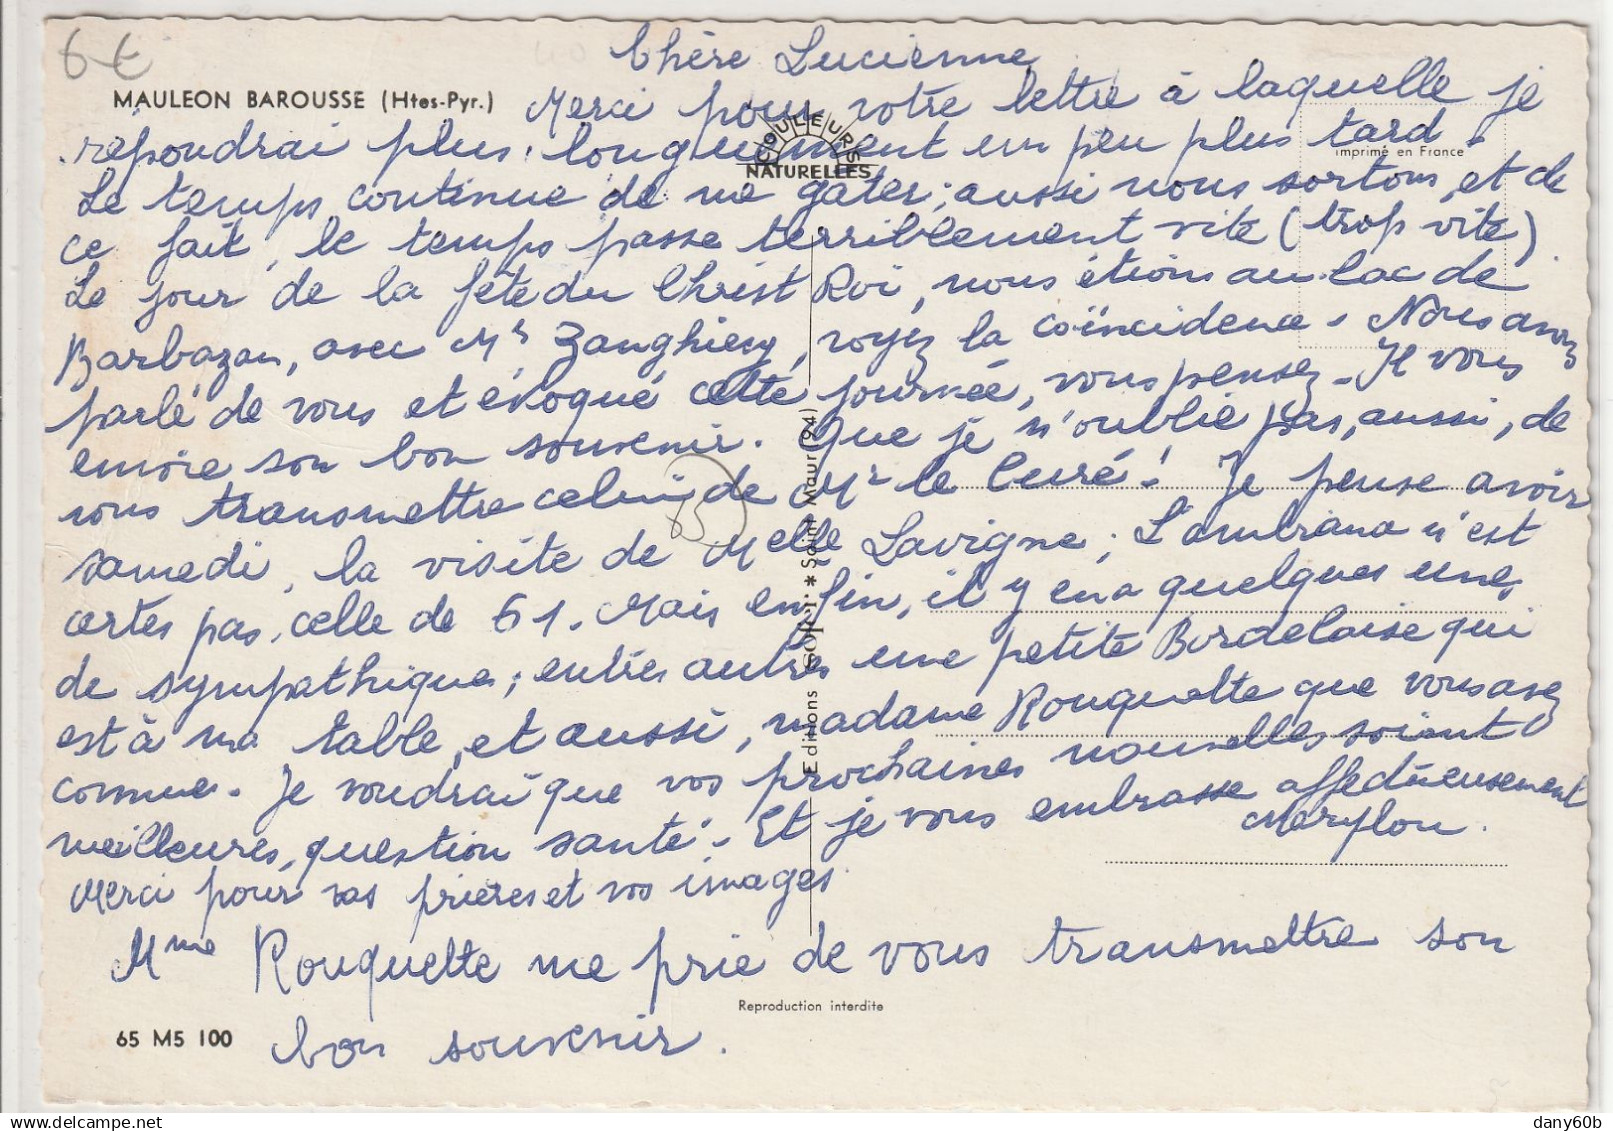 6 €
Chère Lucienne
MAULEON BAROUSSE (Htes-Pyr.)
Merci pour votre lettre à laquelle je
répondrai plus longuement un peu plus tard.
COULEURS
NATURELLES
Imprimé en France
Le temps continue de me gâter; aussi nous sortons, et de
ce fait, le temps passe terriblement vite (trop vite)
Le jour de la fête du Christ Roi, nous étions au lac de
Barbazan, avec Mr, voyez la coïncidence. Nous avons
parlé de vous et évoqué cette journée, vous pensez. Il vous
envoie son bon souvenir. Que je n'oublie pas, aussi, de
vous transmettre celui de Mr le Curé! Je pense avoir
samedi, la visite de Melle Lavigne; L'ambiance n'est
certes pas celle de 61. Mais enfin, il y en a quelques unes
de sympathiques; entres autres une petite Bordelaise qui
est à ma table, et aussi, madame Rouquette que vous avez
connue. Je voudrai que vos prochaines nouvelles soient
meilleures, question santé. Et je vous embrasse affectueusement
Marylou.
Merci pour vos prières et vos images.
Mme Rouquette me prie de vous transmettre son
bon souvenir.
Reproduction interdite
65 M5 100
Editions SOPI * Saint Maur (94)
65
dany60b